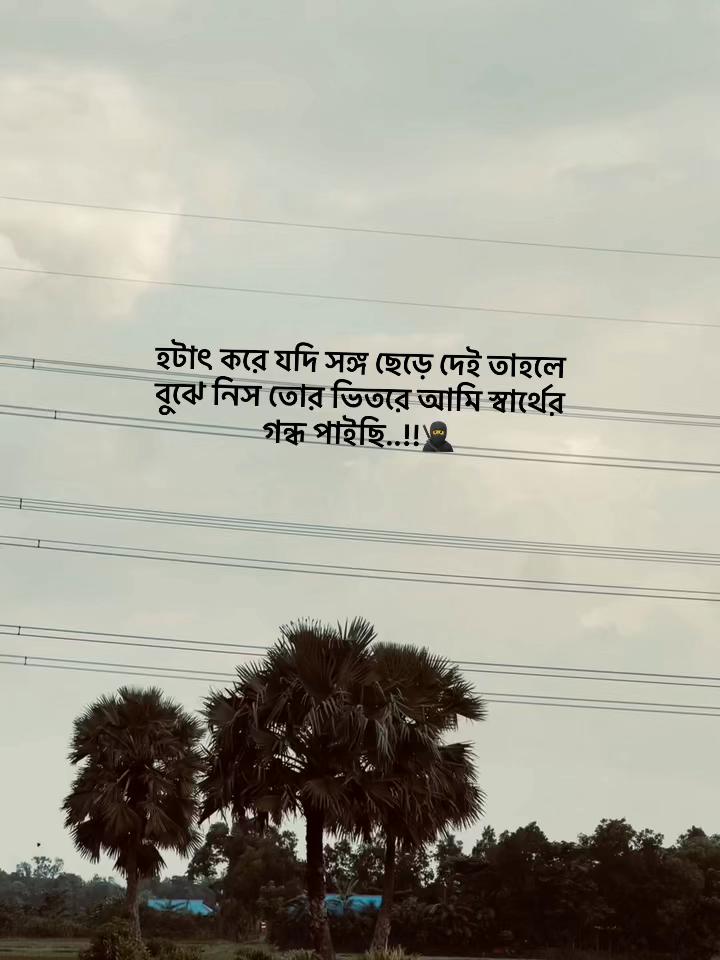 হটাৎ করে যদি সঙ্গ ছেড়ে দেই তাহলে
বুঝে নিস তোর ভিতরে আমি স্বার্থের
গন্ধ পাইছি..!!🥷